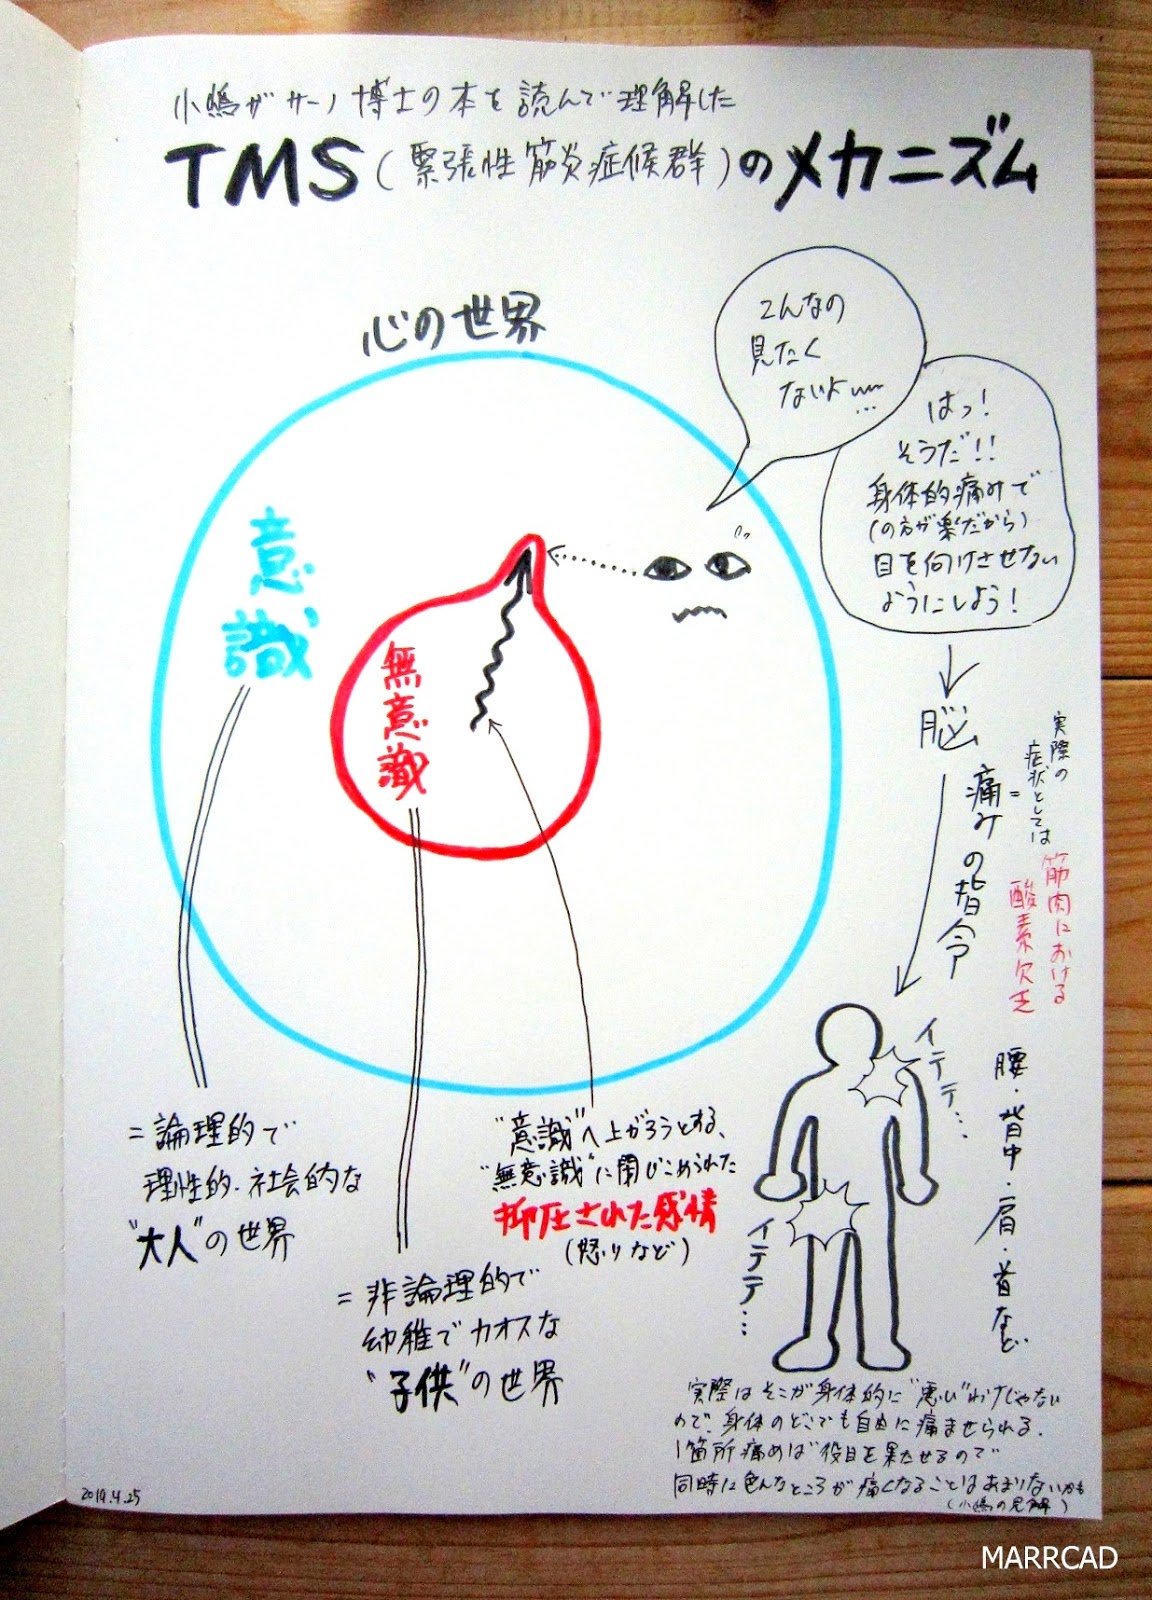 小嶋がサーノ博士の本を読んで理解した
TMS(緊張性筋炎症候群)のメカニズム
心の世界
こんなの
見たく
ないよ〰…
はっ!
そうだ!!
身体的痛みで
(の方が楽だから)
目を向けさせない
ようにしよう!
意識
無意識
脳
痛みの指令
=
実際の
症状としては
筋肉における
酸素欠乏
イテテ…
イテテ…
腰・背中・肩・首など
=論理的で
理性的・社会的な
"大人"の世界
"意識"へ上がろうとする、
"無意識"に閉じこめられた
抑圧された感情
(怒りなど)
=非論理的で
幼稚でカオスな
"子供"の世界
実際はそこが身体的に"悪い"わけじゃない
ので、身体のどこでも自由に痛ませられる。
1箇所痛めば役目を果たせるので
同時に色んなところが痛くなることはあまりないかも
(小嶋の見解)
2014.4.25
MARRCAD